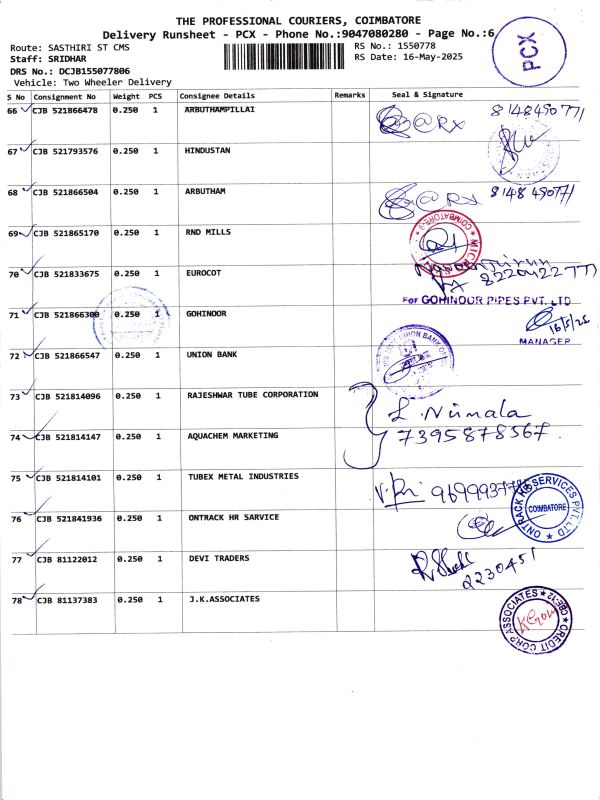 THE PROFESSIONAL COURIERS, COIMBATORE
Delivery Runsheet - PCX - Phone No.:9047080280 - Page No.:6
Route: SASTHIRI ST CMS
RS No.: 1550778
Staff: SRIDHAR
RS Date: 16-May-2025
DRS No.: DCJB155077806
Vehicle: Two Wheeler Delivery
PCX
S No Consignment No Weight PCS Consignee Details Remarks Seal & Signature
66 CJB 521866478 0.250 1 ARBUTHAMPILLAI 8148490771
67 CJB 521793576 0.250 1 HINDUSTAN
68 CJB 521866504 0.250 1 ARBUTHAM 8148490771
69 CJB 521865170 0.250 1 RND MILLS
COIMBATORE-9
70 CJB 521833675 0.250 1 EUROCOT
For GOHINOUR PIPES PVT. LTD
71 CJB 521866300 0.250 1 GOHINOOR
16/5/25
MANAGER
72 CJB 521866547 0.250 1 UNION BANK
UNION BANK OF
73 CJB 521814096 0.250 1 RAJESHWAR TUBE CORPORATION
L. Nirmala
74 CJB 521814147 0.250 1 AQUACHEM MARKETING
7395878567.
75 CJB 521814101 0.250 1 TUBEX METAL INDUSTRIES
76 CJB 521841936 0.250 1 ONTRACK HR SARVICE
ONTRACK HR SERVICES PVT. LTD
COIMBATORE
77 CJB 81122012 0.250 1 DEVI TRADERS
2230451
78 CJB 81137383 0.250 1 J.K.ASSOCIATES
CREDIT CORP ASSOCIATES
CBE-12